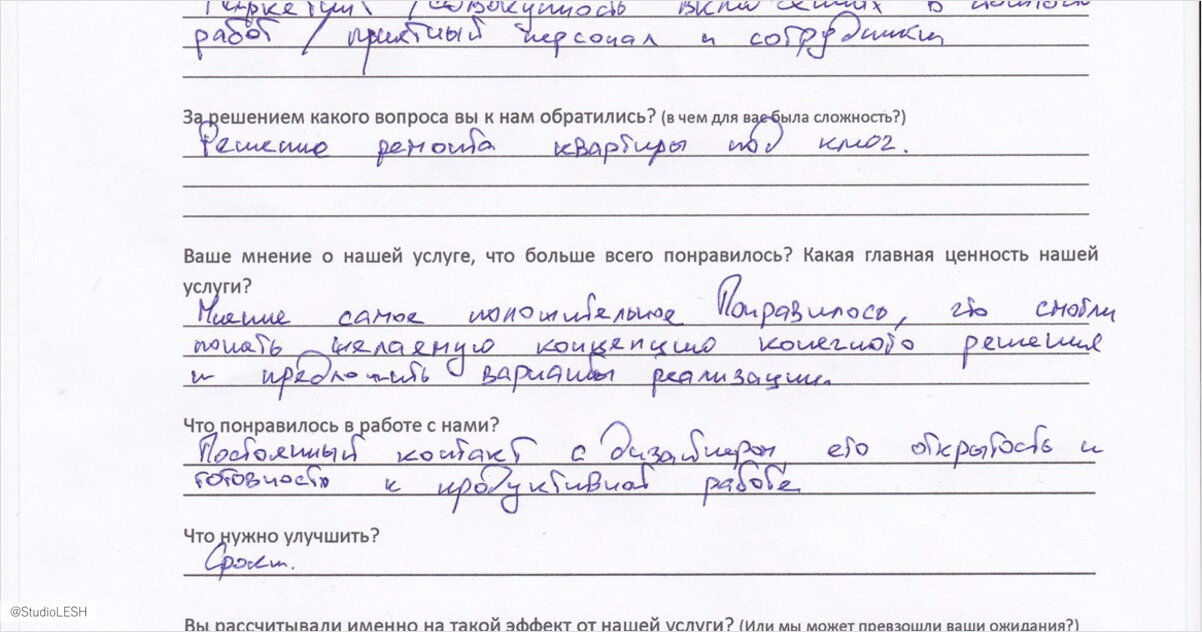 работ / приятный персонал и сотрудники
За решением какого вопроса вы к нам обратились? (в чем для вас была сложность?)
Решение ремонта квартиры под ключ.
Ваше мнение о нашей услуге, что больше всего понравилось? Какая главная ценность нашей
услуги?
Мнение самое положительное Понравилось, что смогли
понять желаемую концепцию конечного решения
и предложить варианты реализации.
Что понравилось в работе с нами?
Постоянный контакт с дизайнером его открытость и
готовность к продуктивной работе
Что нужно улучшить?
Сроки.
@StudioLESH
Вы рассчитывали именно на такой эффект от нашей услуги? (Или мы может превзошли ваши ожидания?)